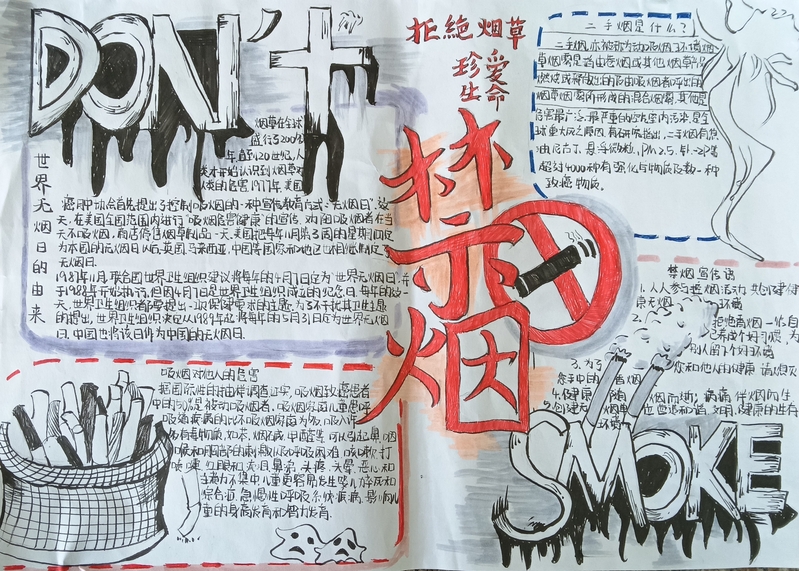 DON'T
烟草在全球
盛行了200多
年,直到20世纪,人
类才开始认识到烟草对
人类的危害1977年,美国
世界无烟日的由来
癌症协会首先提出了控制吸烟的一种宣传教育方式:"无烟日".这
天,在美国全国范围内进行"吸烟危害健康"的宣传,劝阻吸烟者在当
天不吸烟,商店停售烟草制品一天.美国把每年11月第3周的星期四定
为本国的无烟日以后,英国马来西亚,中国等国家和地区也相继制定了
无烟日.
1987年11月,联合国世界卫生组织建议将每年的4月7日定为"世界无烟日",并
于1988年开始执行,但因4月7日是世界卫生组织成立的纪念日,每年的这一
天,世界卫生组织都要提出一项保健要求的主题.为了不干扰其卫生主题
的提出,世界卫生组织决定从1989年起将每年的5月31日定为世界无烟
日.中国也将该日作为中国的无烟日.
吸烟对他人的危害
据国际性的抽样调查证实,吸烟致癌患者
中的
是被动吸烟者.吸烟家庭儿童患呼
吸道疾病的比不吸烟家庭为多.吸入
多有毒物质,如苯,
可以引起鼻
喉和
的刺激
呼吸困难,咳嗽,打
头疼,头晕,恶心和
注意力不集中.儿童更容易发生婴儿猝死和
综合症,急慢性呼吸系统疾病,影响儿
童的身高发育和智力发育.
拒絶烟草
珍愛
生命
禁
烟
二手烟是什么?
二手烟,亦被称为被动吸烟,环境烟
草烟雾是指由卷烟或其他烟草产品
燃烧
释放出的及由吸烟者呼出的
烟草烟雾所形成的混合烟雾.其
危害最广泛,最严重的室内
污染,是全
球重大死亡原因.有研究指出,二手烟有焦
油,尼古丁,悬浮微粒,PM2.5,
超过4000种有害化学物质及数十种
致癌物质.
禁烟宣传语
1.人人参与控烟活动,共创健康
无烟环境
2.
拒绝
烟
自
己养成个好习惯,为
别人留下个好环境
3.为了
您和他人的健康,请熄灭
您手中的香烟
4.健康随
烟而
,病痛伴烟而生
5.创建无烟
SMOKE